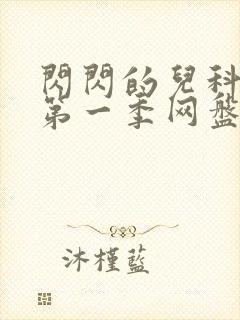 閃閃的兒科
第一季网盤
沐槿藍